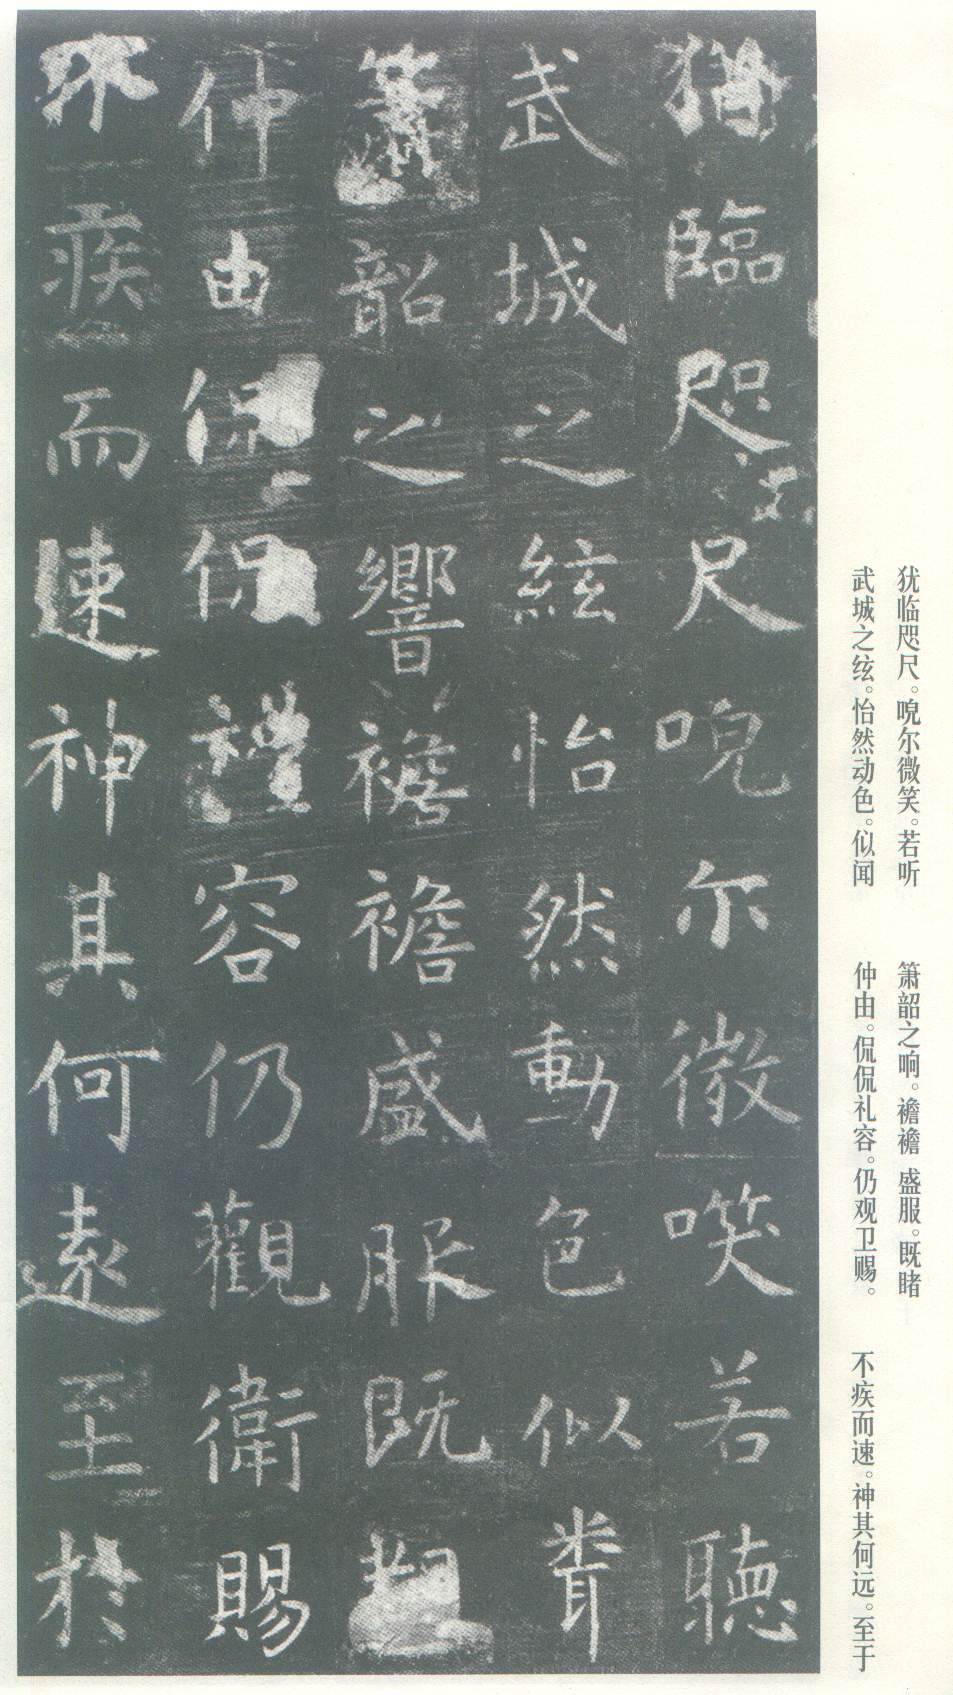 猶臨咫尺唲尔微㗛若聽
武城之絃怡然動色似䎽
簫韶之響襜襜盛服既覩
仲由侃侃禮容仍觀衛賜
不疾而速神其何遠至於
犹临咫尺。唲尔微笑。若听
武城之絃。怡然动色。似闻
箫韶之响。襜襜 盛服。既睹
仲由。侃侃礼容。仍观卫赐。
不疾而速。神其何远。至于